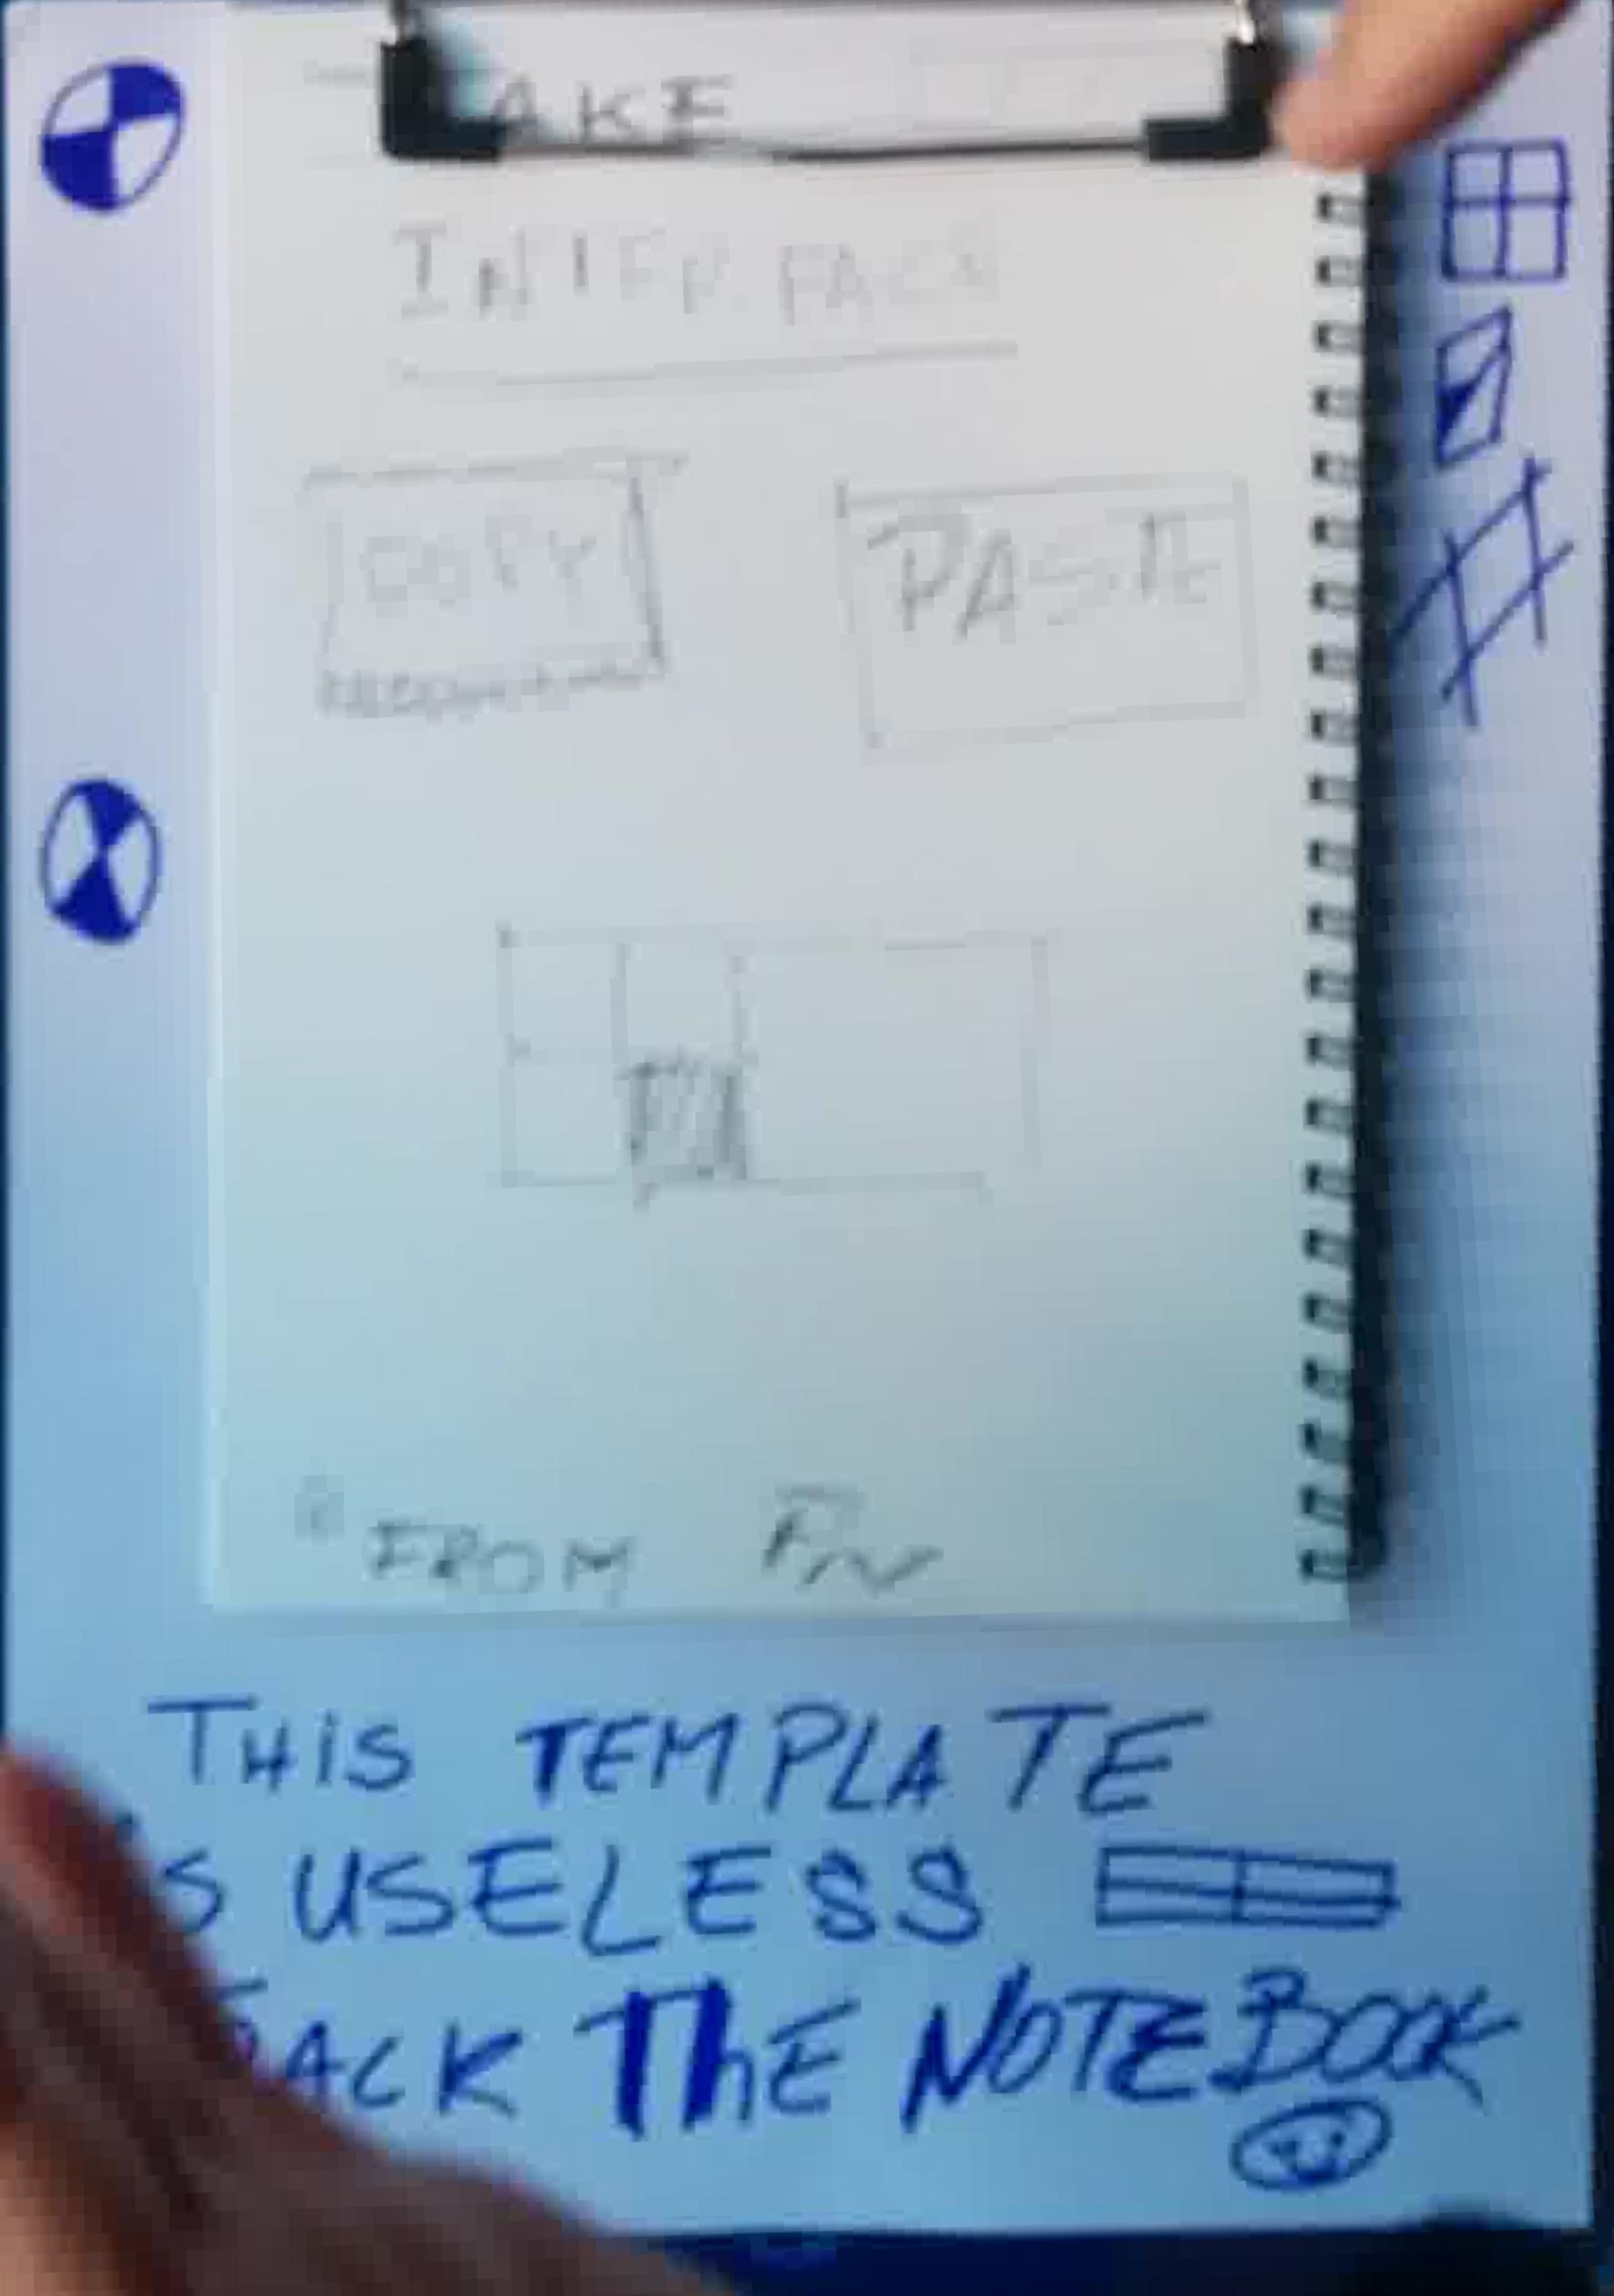 AKE
INTERFACE
COPY PASTE
FROM
THIS TEMPLATE
S USELESS
ACK THE NOTEBOOK